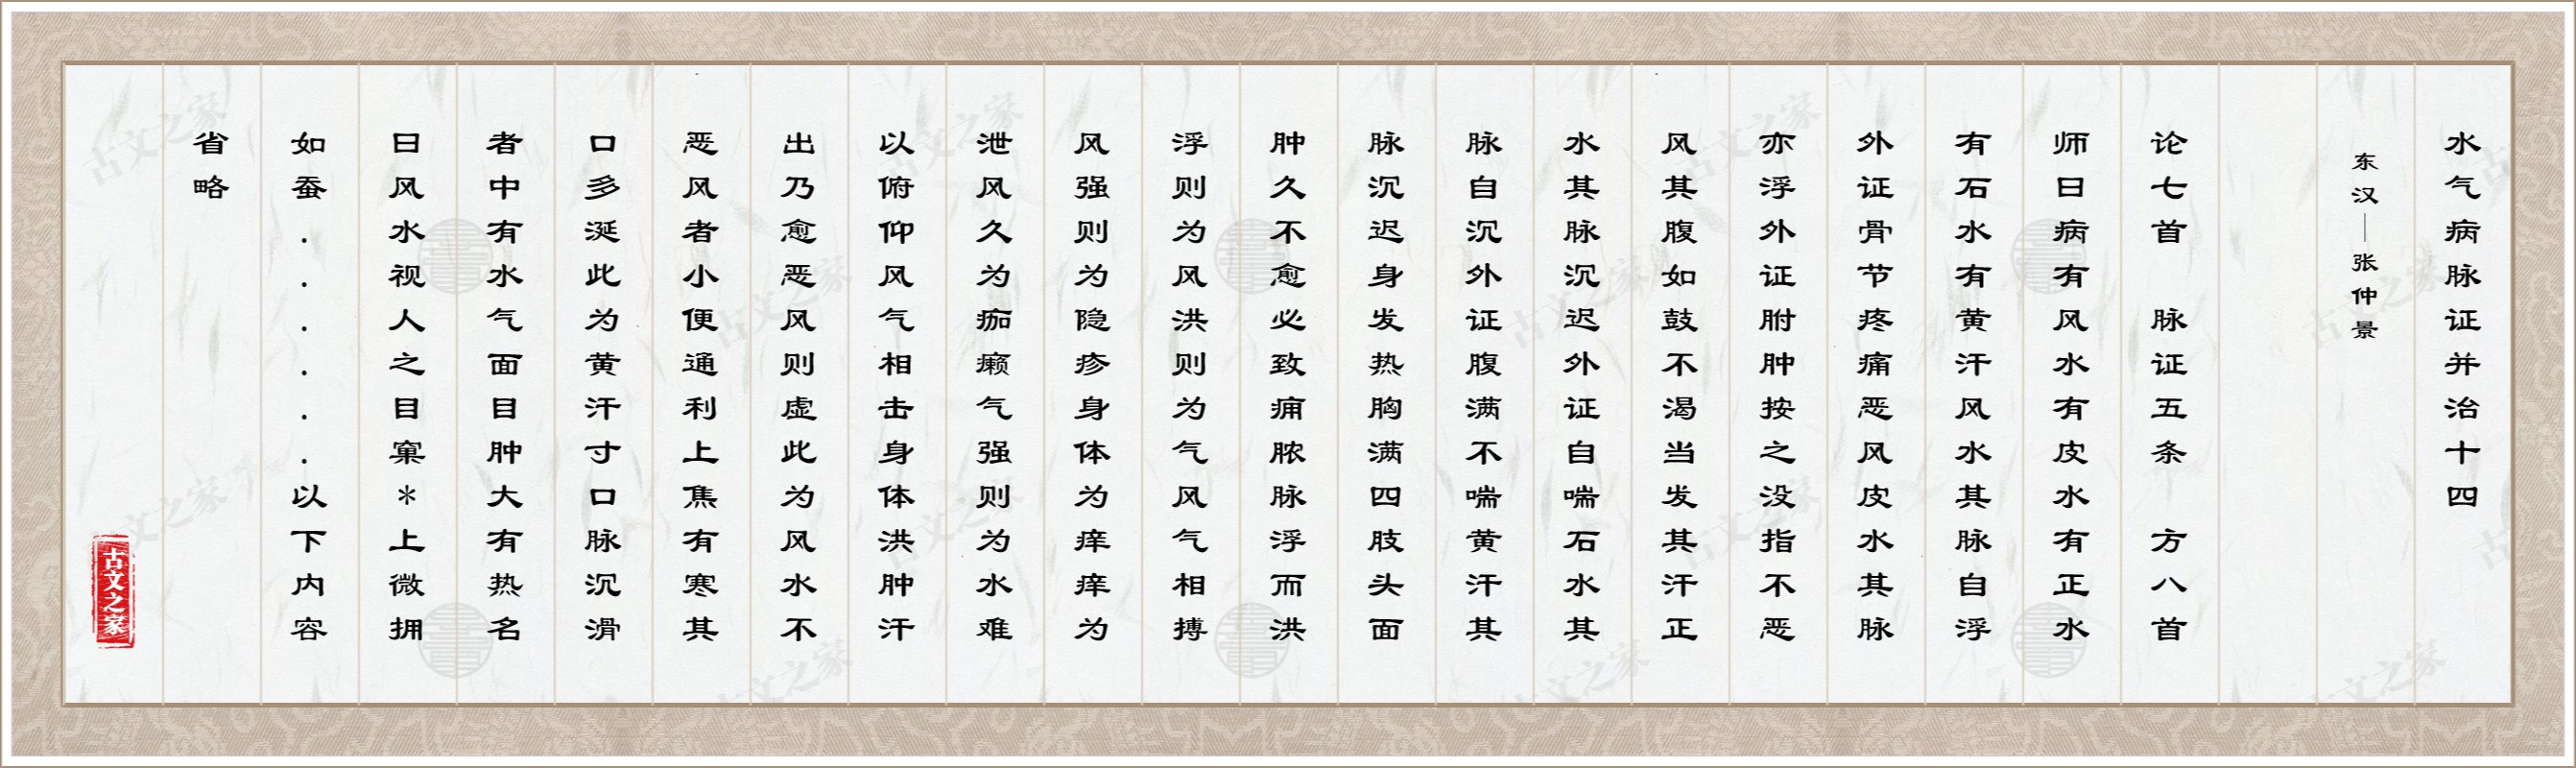 水气病脉证并治十四
东汉｜张仲景
论七首 脉证五条 方八首
师曰病有风水有皮水有正水
有石水有黄汗风水其脉自浮
外证骨节疼痛恶风皮水其脉
亦浮外证胕肿按之没指不恶
风其腹如鼓不渴当发其汗正
水其脉沉迟外证自喘石水其
脉自沉外证腹满不喘黄汗其
脉沉迟身发热胸满四肢头面
肿久不愈必致痈脓脉浮而洪
浮则为风洪则为气风气相搏
风强则为隐疹身体为痒痒为
泄风久为痂癞气强则为水难
以俯仰风气相击身体洪肿汗
出乃愈恶风则虚此为风水不
恶风者小便通利上焦有寒其
口多涎此为黄汗寸口脉沉滑
者中有水气面目肿大有热名
曰风水视人之目窠*上微拥
如蚕......以下内容
省略
古文之家